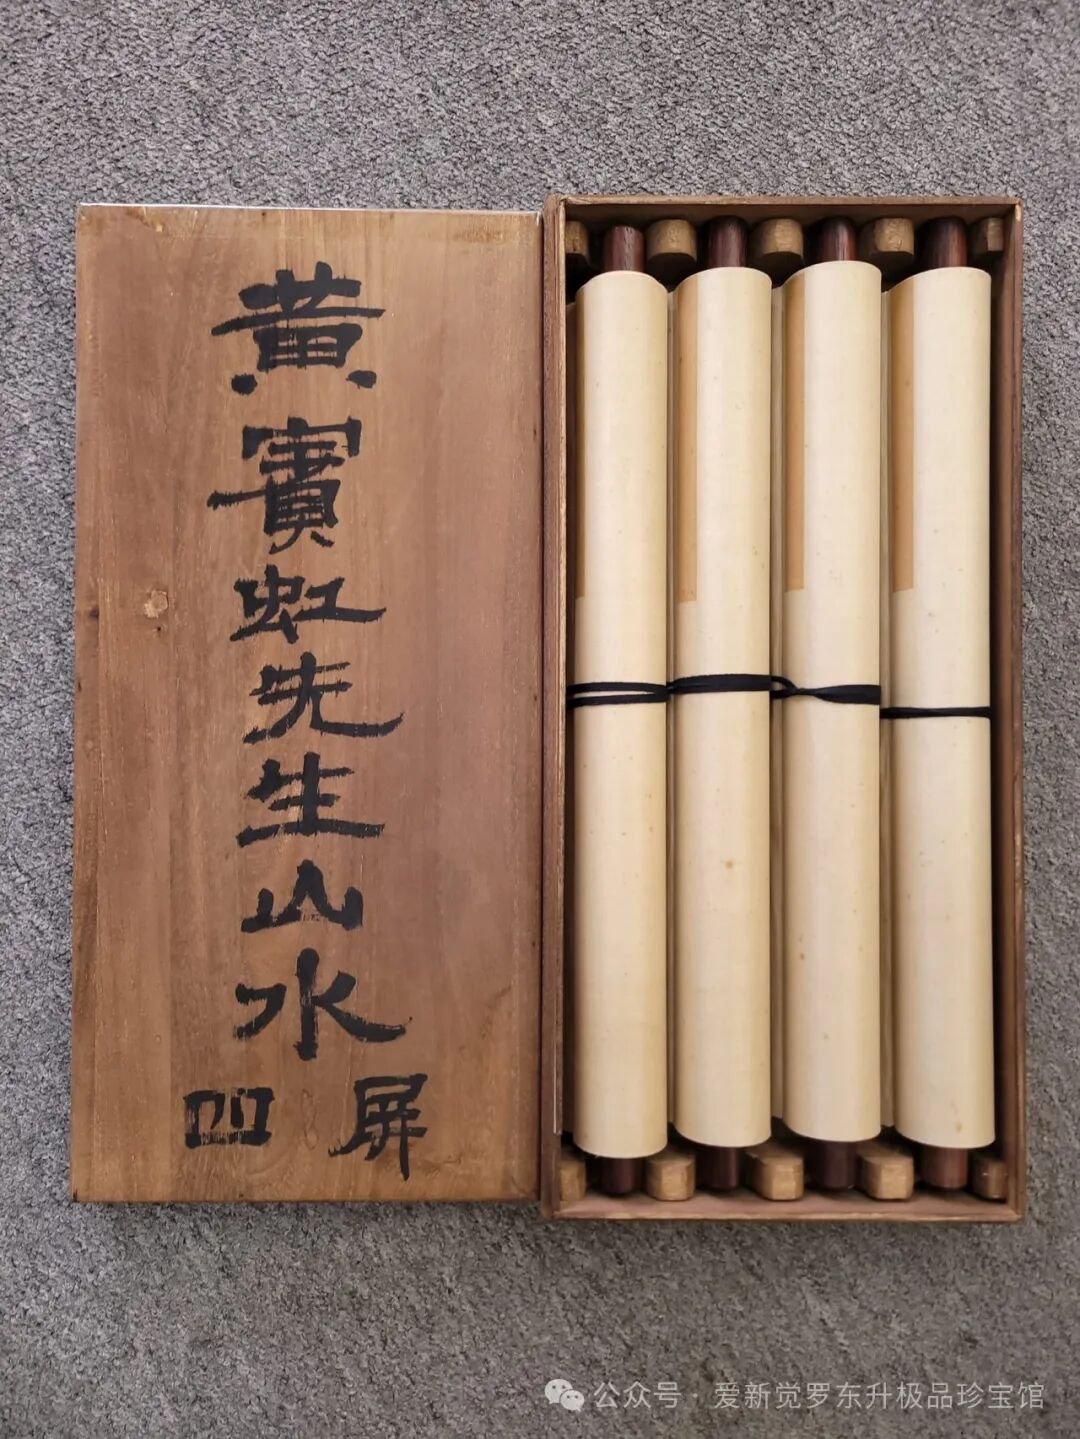 黄賓虹先生山水
屏四
公众号 · 爱新觉罗东升极品珍宝馆